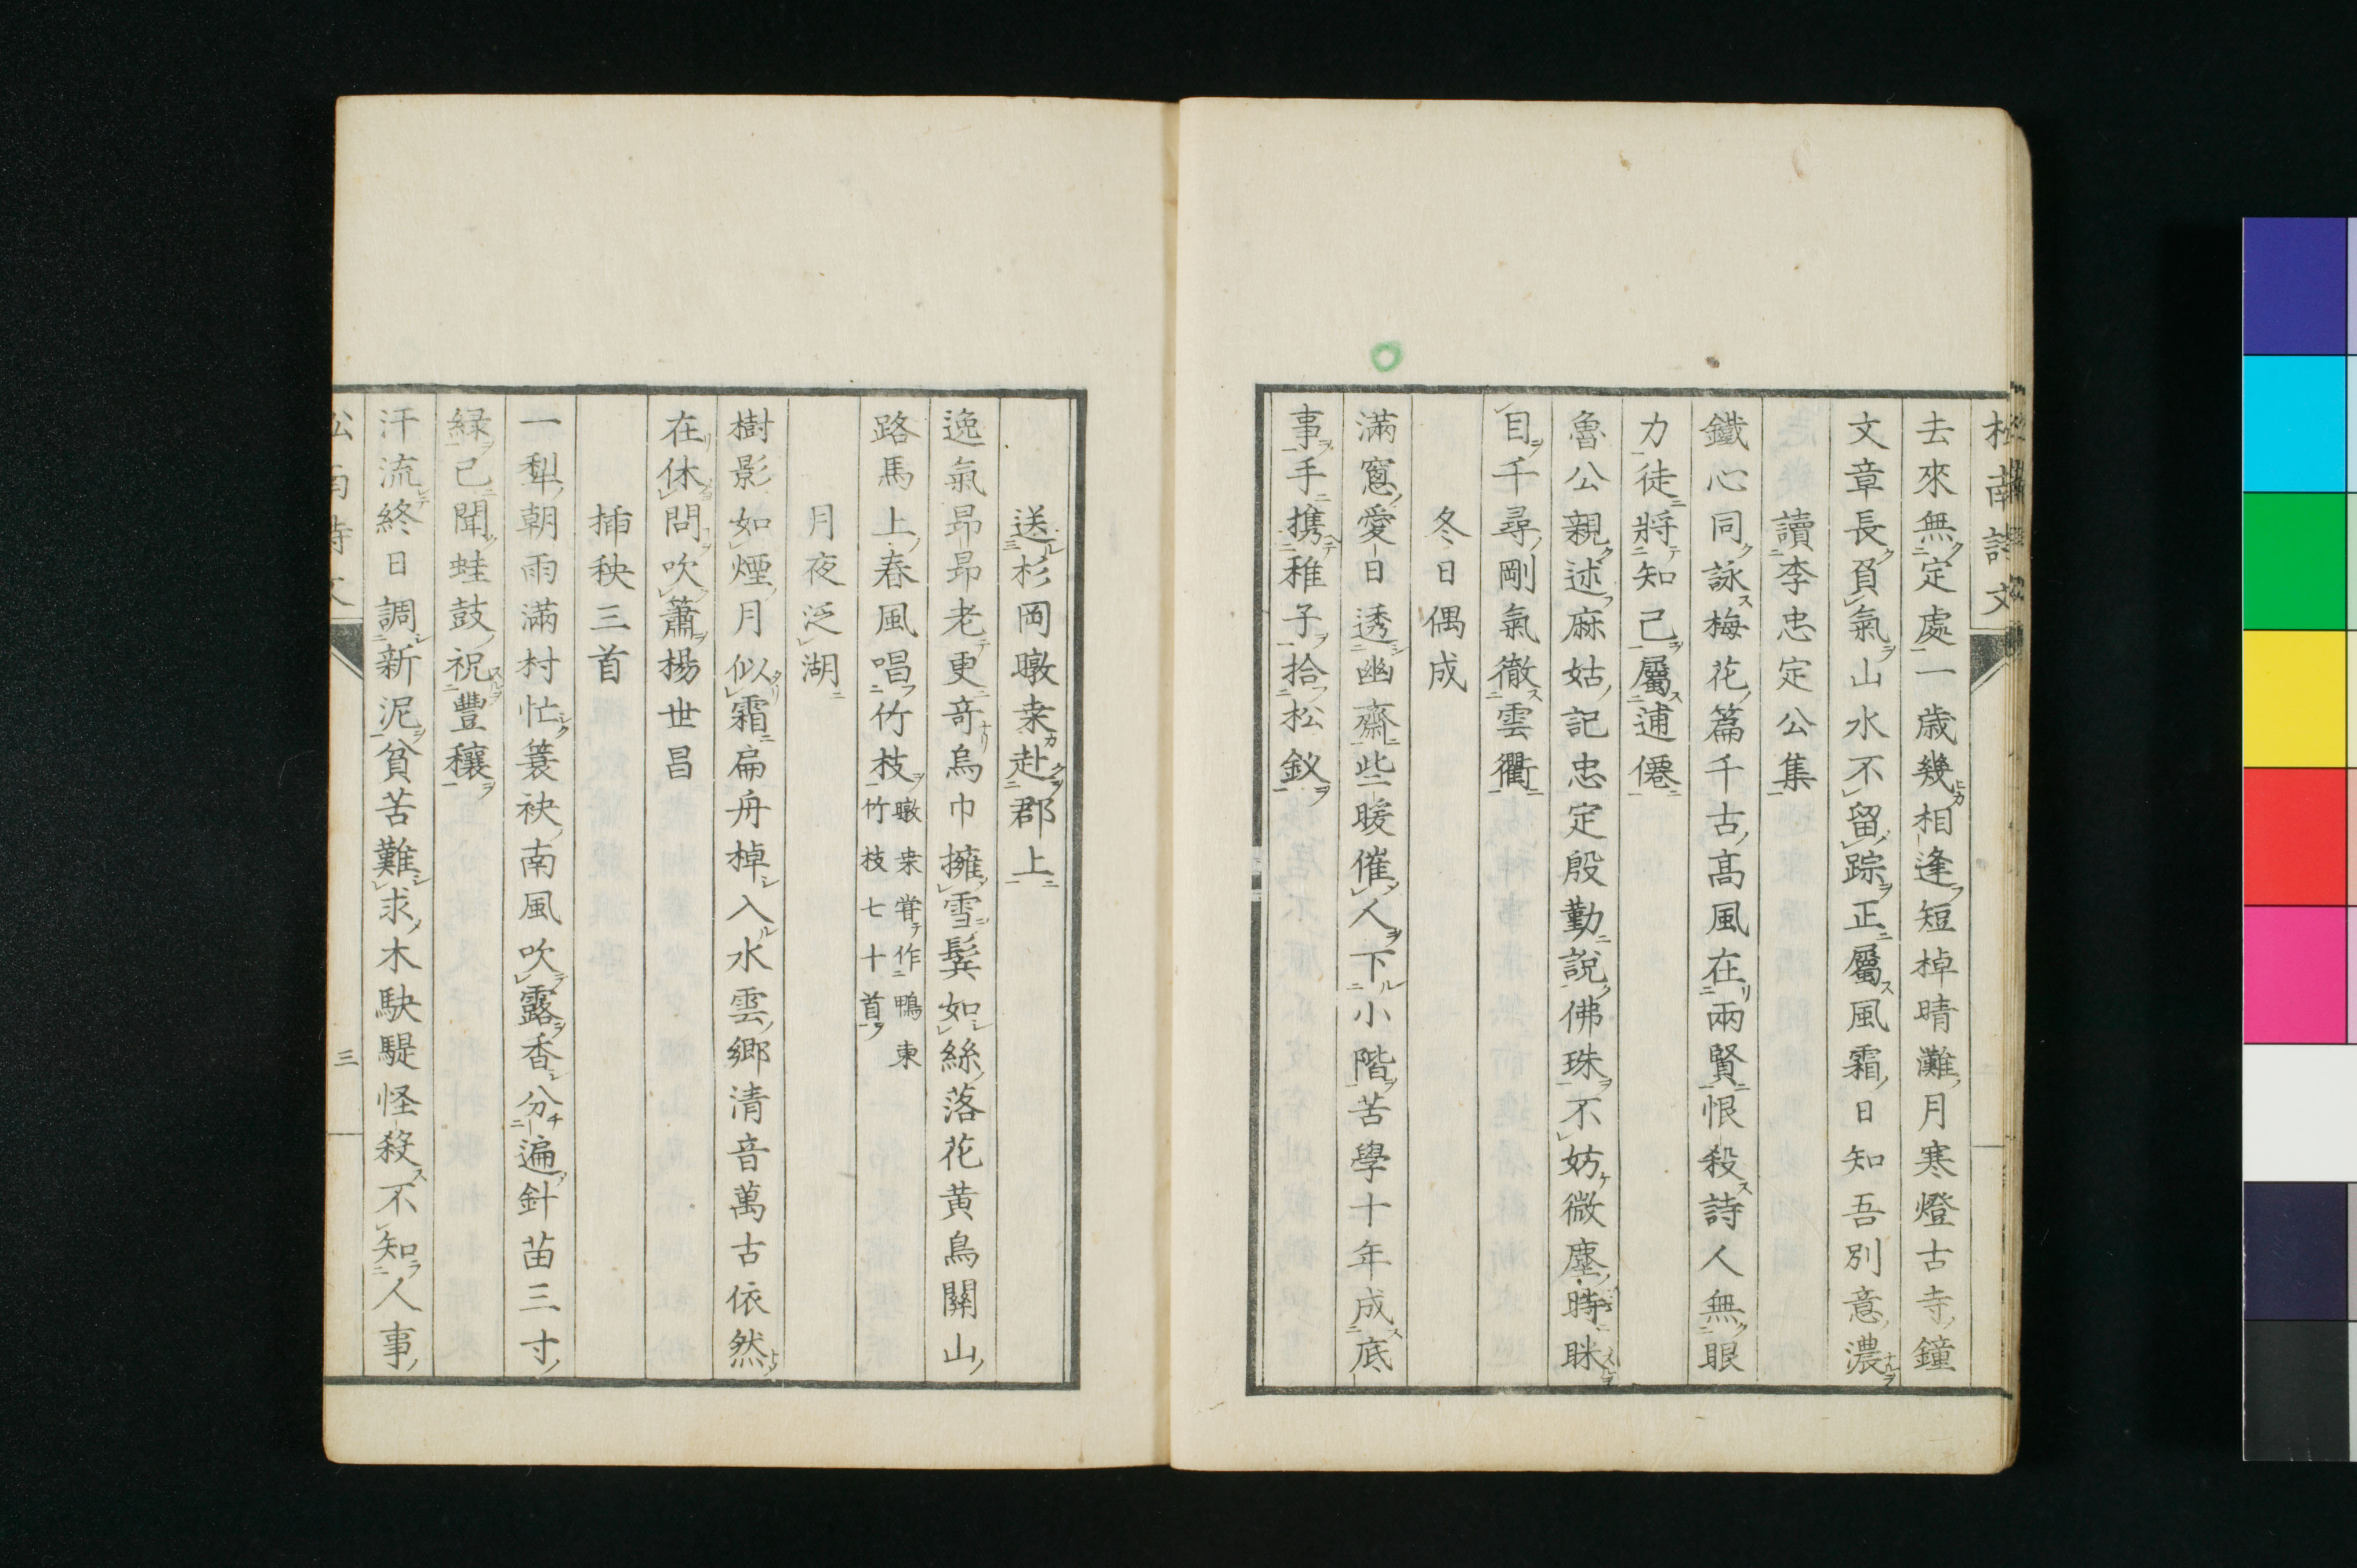 去來無定處一歳幾相逢短棹晴灘月寒燈古寺鐘
文章長負氣山水不留踪正屬風霜日知吾別意濃
讀李忠定公集
鐵心同詠梅花篇千古高風在兩賢恨殺詩人無眼
力徒將知己屬逋僊
魯公親述麻姑記忠定殷勤說佛珠不妨微塵時眯
目千尋剛氣徹雲衢
冬日偶成
滿窻愛日透幽齋些暖催人下小階苦學十年成底
事手携稚子拾松釵
送杉岡暾桒赴郡上
逸氣昂昂老更竒烏巾擁雪鬢如絲落花黄鳥關山
路馬上春風唱竹枝
暾桒甞作鴨東
竹枝七十首
月夜泛湖
樹影如煙月似霜扁舟棹入水雲鄉清音萬古依然
在休問吹簫楊世昌
插秧三首
一犁朝雨滿村忙簑袂南風吹露香分遍針苗三寸
緑已聞蛙鼓祝豐穰
汗流終日調新泥貧苦難求木駃騠怪殺不知人事
三